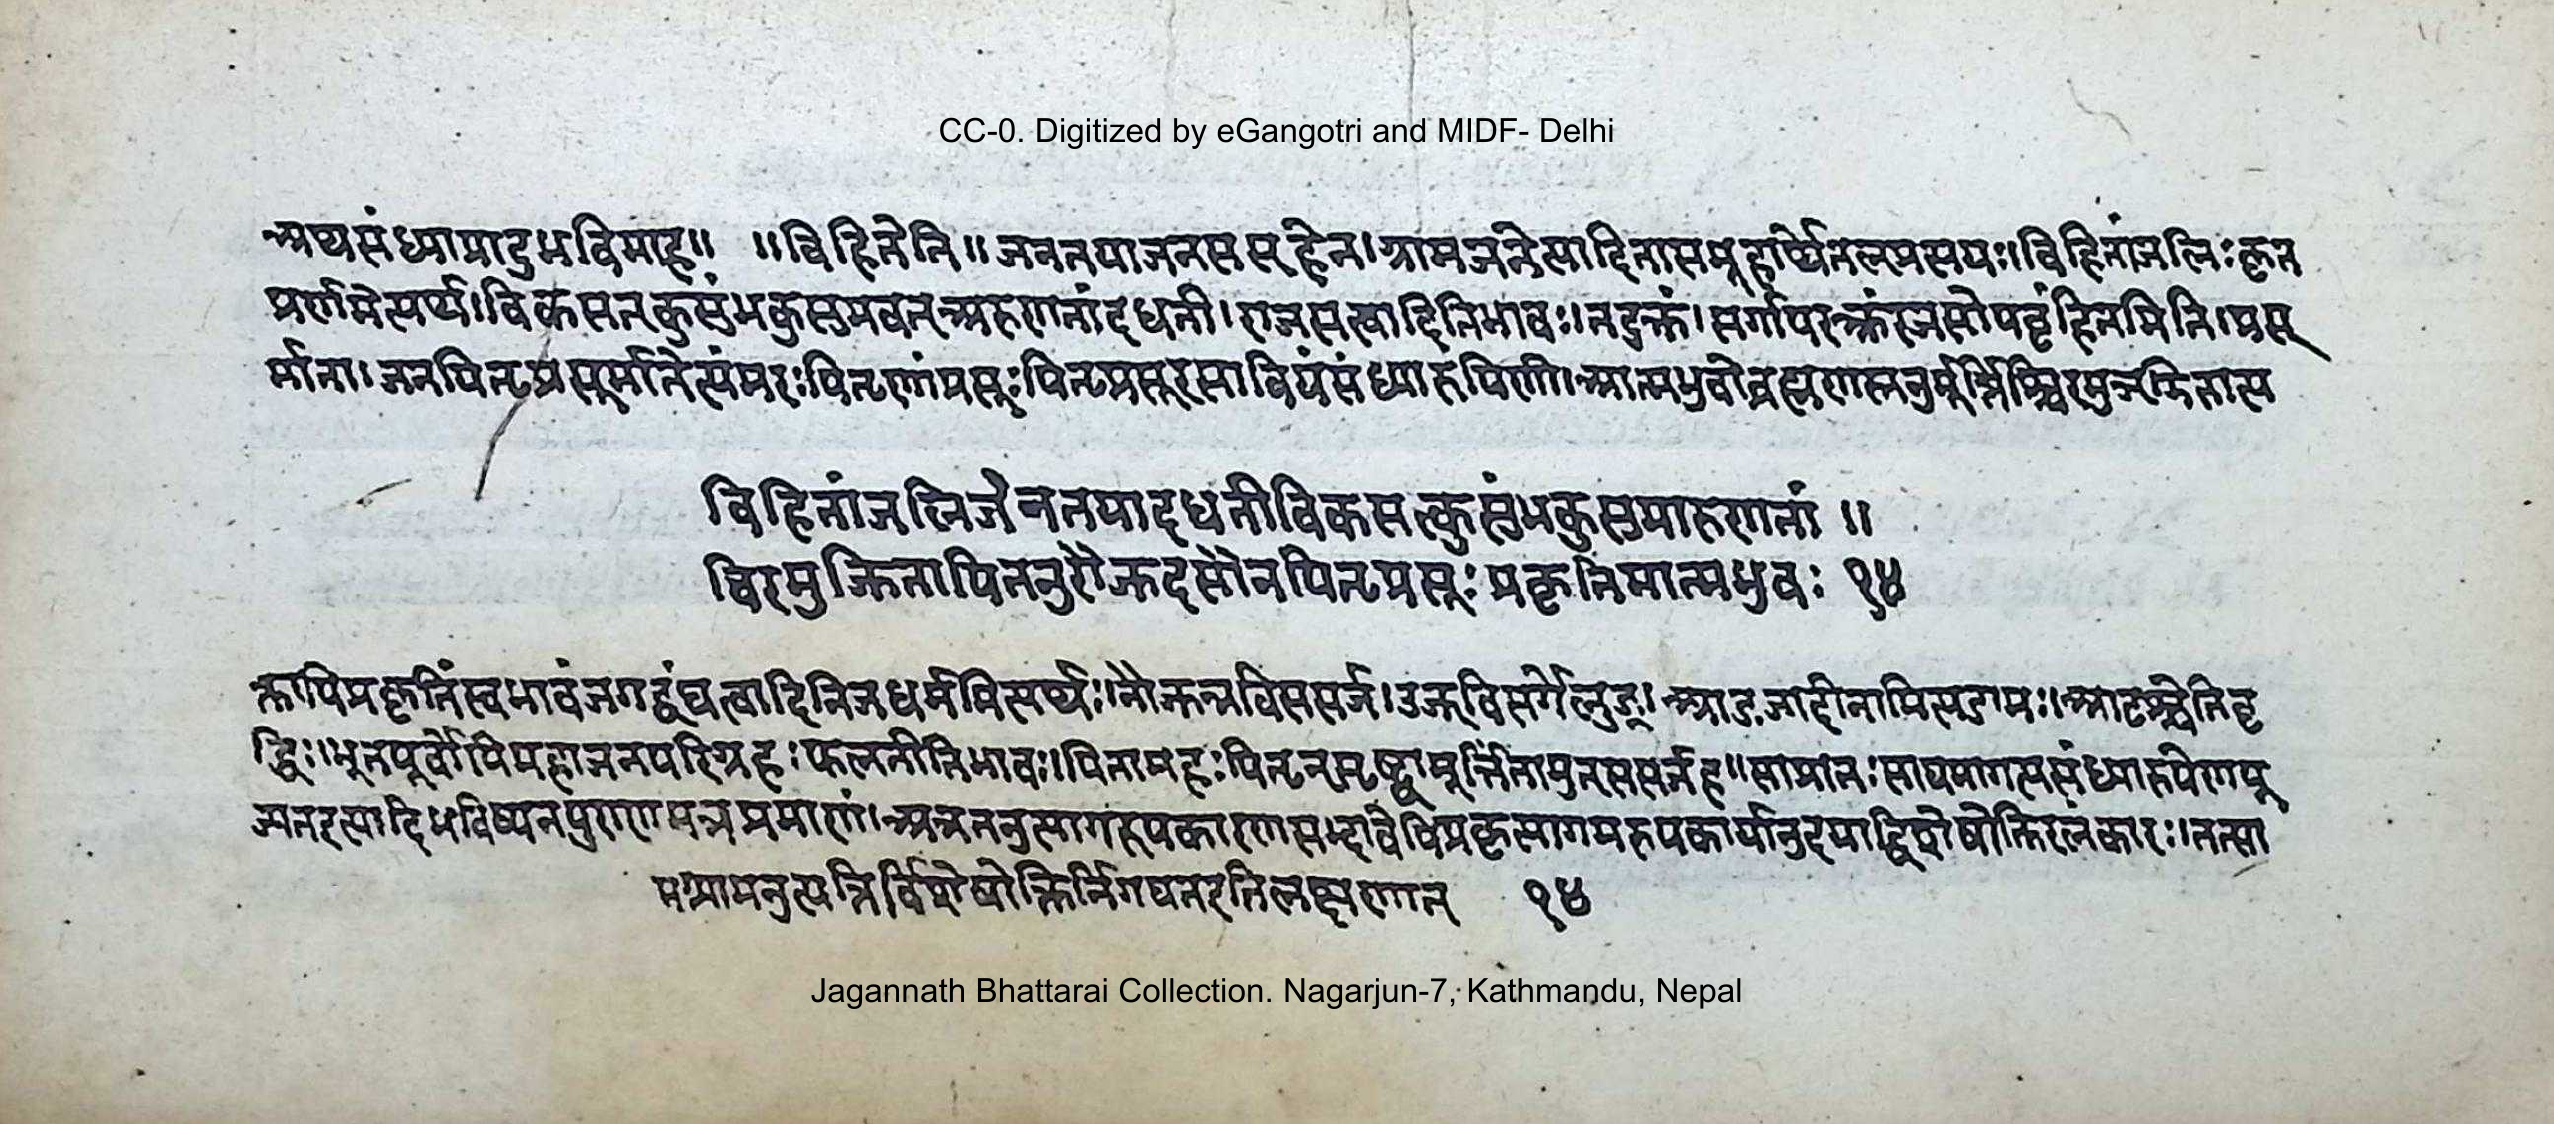 CC-0. Digitized by eGangotri and MIDF- Delhi
अथसंध्याप्रादुर्भावमाह॥ ॥विहितेति॥जनतयाजनसमूहेन।ग्रामजनेत्यादिनासमूहार्थेतल्प्रत्ययः।विहितांजलिः कृत
प्रणमेत्यर्थ।विकसतकुसुंभकुसुमवत्अरुणतांदधती।राजसत्वादितिभावः।तदुक्तं।सर्गायरक्तंरजसोपबृंहितमिति।प्रसू
र्माता।जनयितृप्रसूर्मातेत्यमरः पितॄणांप्रसूः पितृप्रसूरसावियंसंध्यारुपिणी।आत्मभुवोब्रह्मणस्तनुर्मूर्त्तिश्चिरमुज्झितात्य
विहितांजलिर्जनतयादधतीविकसत्कुसुंभकुसुमारुणतां ॥
चिरमुज्झितापितनुरौज्झदसौनपितृप्रसूः प्रकृतिमात्मभुवः १४
क्तापिप्रकृतिंस्वभावंजगद्वंद्यत्वादिनिजधर्ममित्यर्थः।नौज्झन्नविससर्ज।उज्झविसर्गेलुङ्।आडजादीनामित्यडागमः।आटश्चेतिवृ
द्धिः।भूतपूर्वोपिमहाजनपरिग्रहः फलतीतिभावः।पितामहः पितृन्सृष्ट्वामूर्त्तिंतामुत्ससर्जह॥साप्रातः सायमागत्यसंध्यारुपेणपू
ज्यतइत्यादिभविष्यतपुराणमत्रप्रमाणं।अत्रतनुत्यागरूपकारणसद्भावेपिप्रकृत्यागमरुपकार्यानुदयाद्विशेषोक्तिरलंकारः।तत्सा
मग्र्यामनुत्पत्तिर्विशेषोक्तिर्निगद्यतइतिलक्षणात् १४
Jagannath Bhattarai Collection. Nagarjun-7, Kathmandu, Nepal